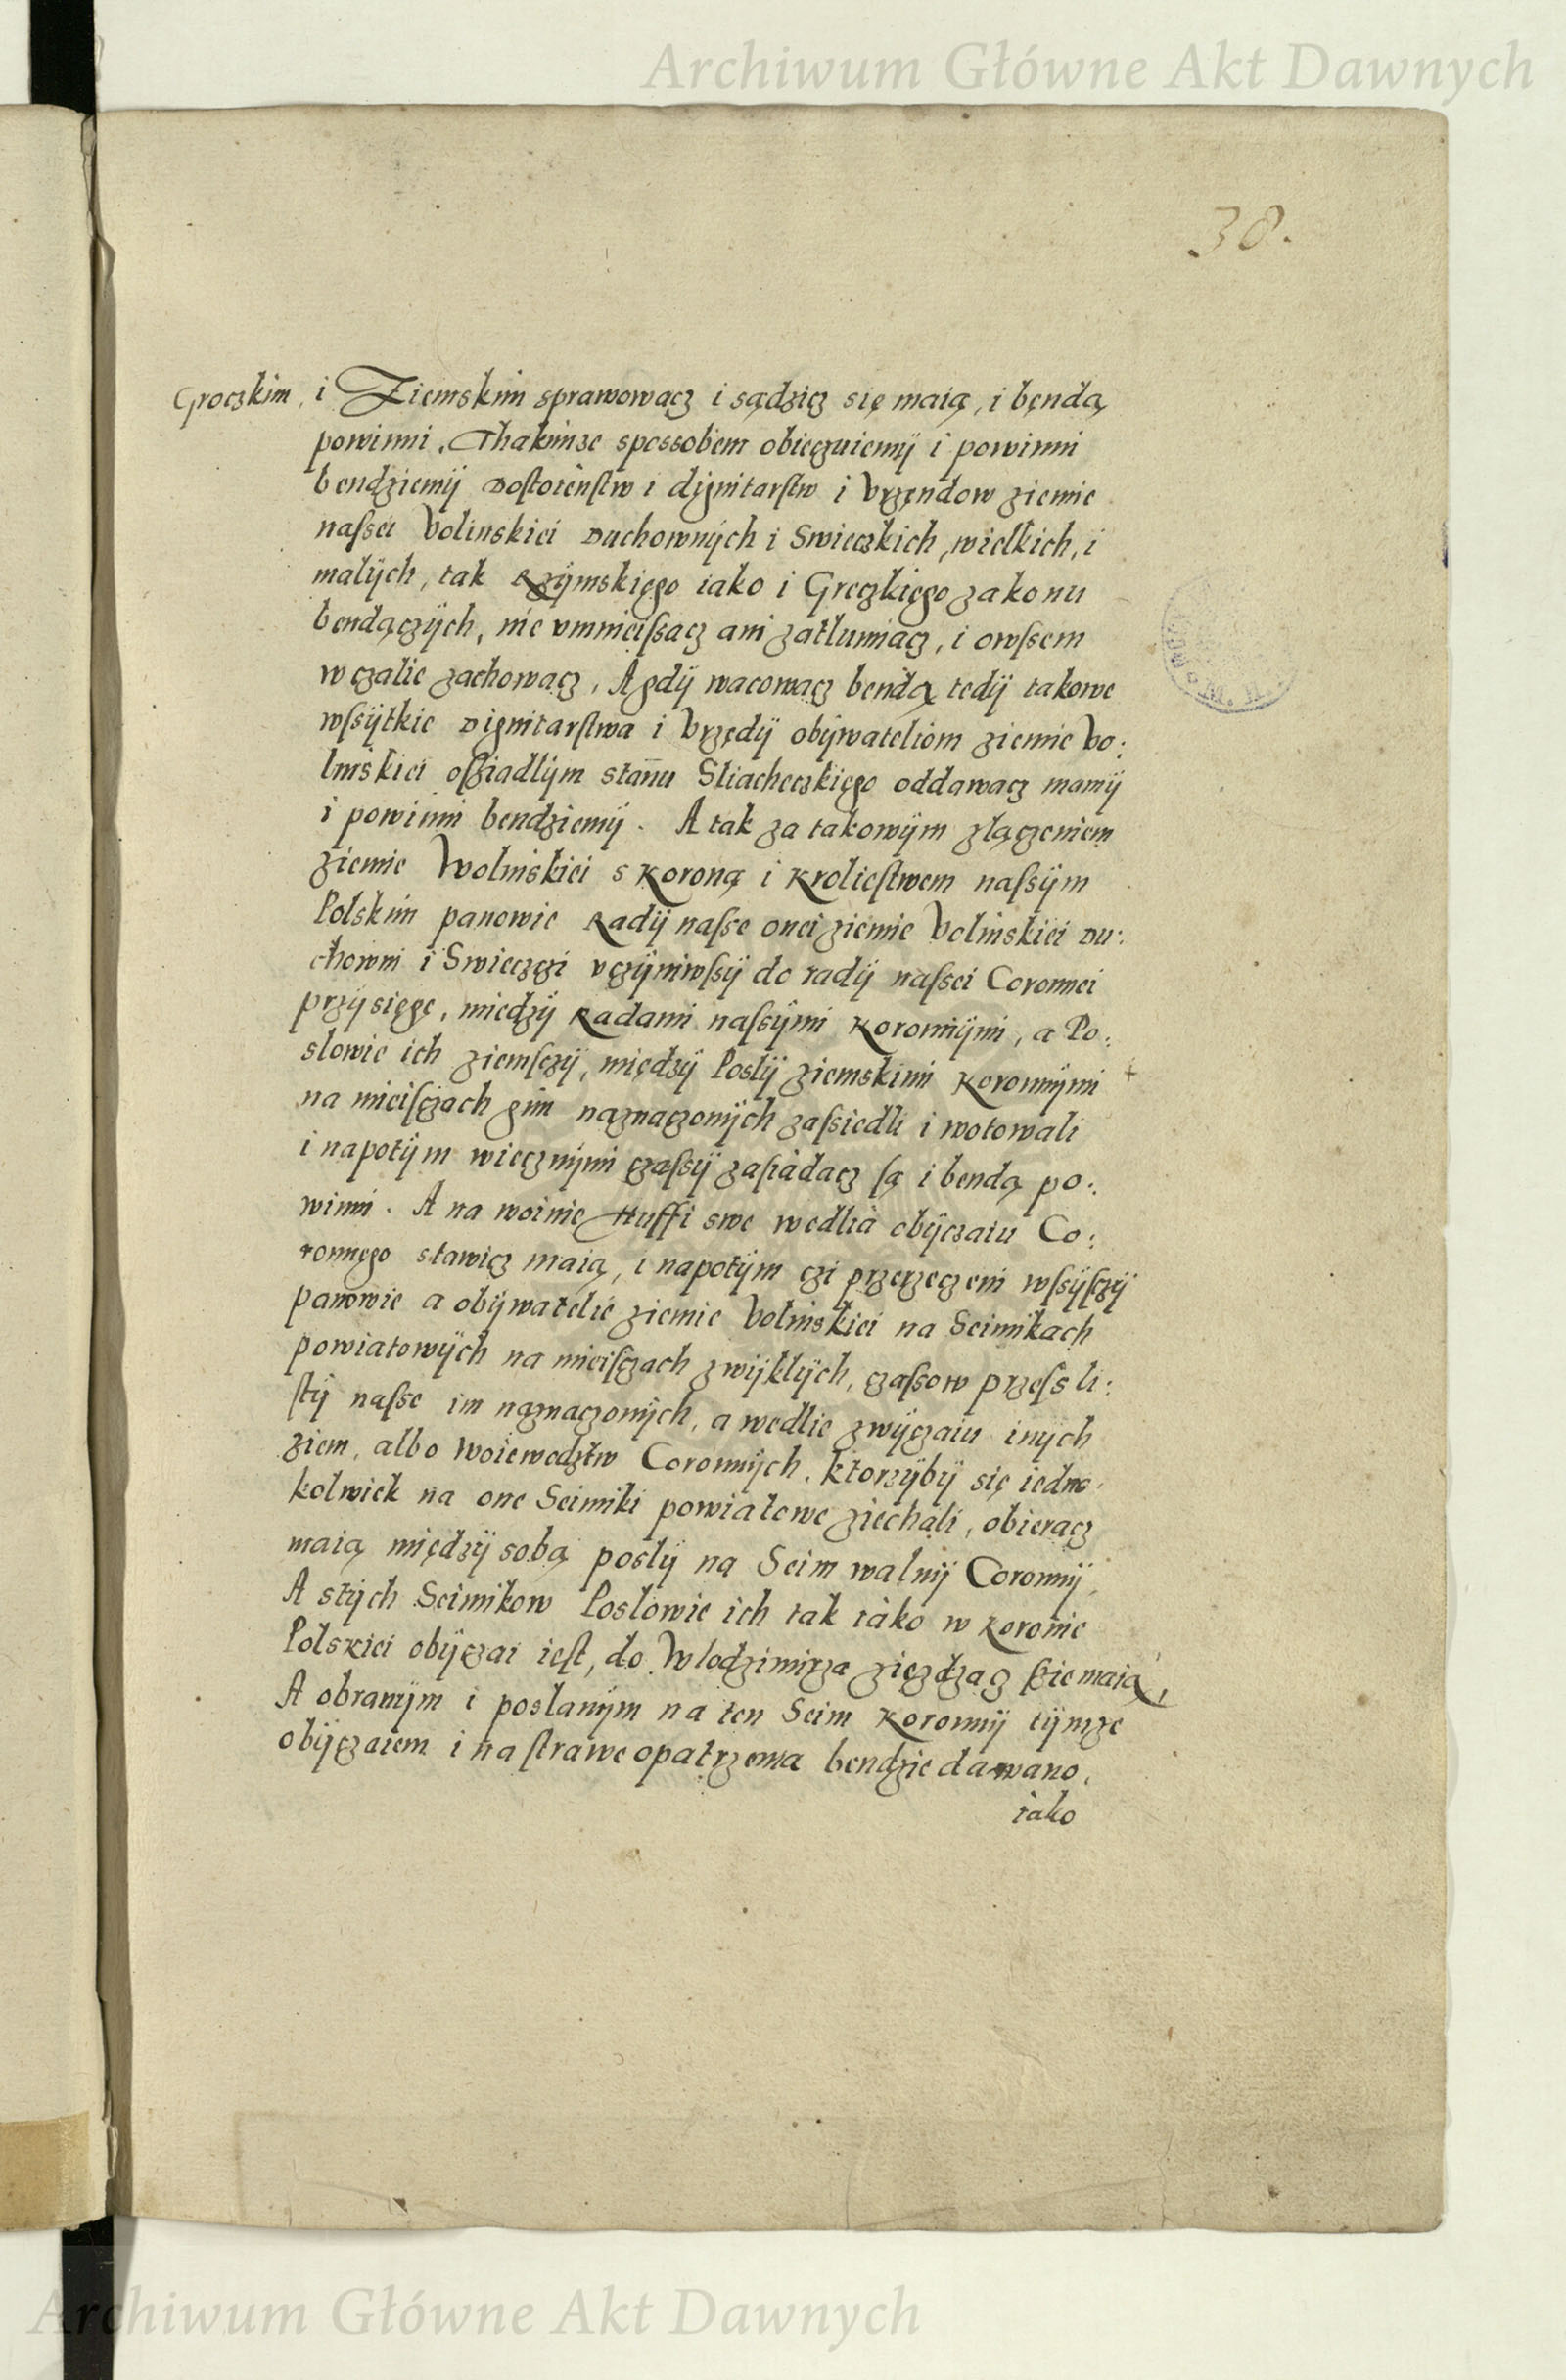 Archiwum Główne Akt Dawnych
38.
Groczkim, i Ziemskim sprawowacz i sądzicz się maią, i bendą
powinni. Thakimze spossobem obieczuiemÿ i powinni
bendziemÿ Dostoienstw i dignitarstw i Vrzendow ziemie
naſsei Volinskiei Duchownÿch i Swieczkich, wielkich, i
malÿch, tak Rzÿmskięgo iako i Greczkięgo zakonu
bendączÿch, nie vmnieiſsacz ani zatlumiacz, i owſsem
w czalie zachowacz. A gdÿ wacowacz bendą tedÿ takowe
wſsÿtkie Dignitarſtwa i Vrzędÿ obÿwateliom ziemie Vo:
linskiei oſziadlÿm stanu Sliacheczkięgo oddawacz mamÿ
i powinni bendziemÿ. A tak za takowÿm zlączeniem
ziemie Wolinskiei s Koroną i Krolieſtwem naſsÿm
Polskim panowie Radÿ naſse onei ziemie Volinskiei Du:
chowni i Swieczczi vczÿniwſsÿ do radÿ naſsei Coronnei
przÿsięgę, miedzÿ Radami naſsÿmi Koronnÿmi, a Po:
slowie ich ziemſczÿ, międzÿ Poslÿ ziemskimi Koronnÿmi
na mieiſczach gim naznaczonÿch zaſsiedli i wotowali
i napotÿm wiecznÿmi czaſsÿ zaſiadacz ſą i bendą po:
winni. A na woinie Huffi swe wedlia obÿczaiu Co:
ronnęgo stawicz maią, i napotÿm czi przerzeczeni wſsÿſczÿ
panowie a obÿwatelie ziemie Volinskiei na Seimikach
powiatowÿch na mieiſczach zwÿklÿch, czaſsow przeſs li:
ſtÿ naſse im naznaczonÿch, a wedlie zwÿczaiu inÿch
ziem, albo Woiewodztw Coronnÿch, ktorzÿbÿ się iedno
kolwiek na one Seimiki powiatowe ziechali, obieracz
maią międzÿ sobą poslÿ na Seim walnÿ Coronnÿ,
A stÿch Seimikow Poslowie ich tak iako w Koronie
Polskiei obÿczai ieſt, do Wlodzimirza ziezdzacz ſzie maią,
A obranÿm i poslanÿm na ten Seim Koronnÿ tÿmze
obÿczaiem i na ſtrawe opatrzenia bendzie dawano,
iako
Archiwum Główne Akt Dawnych